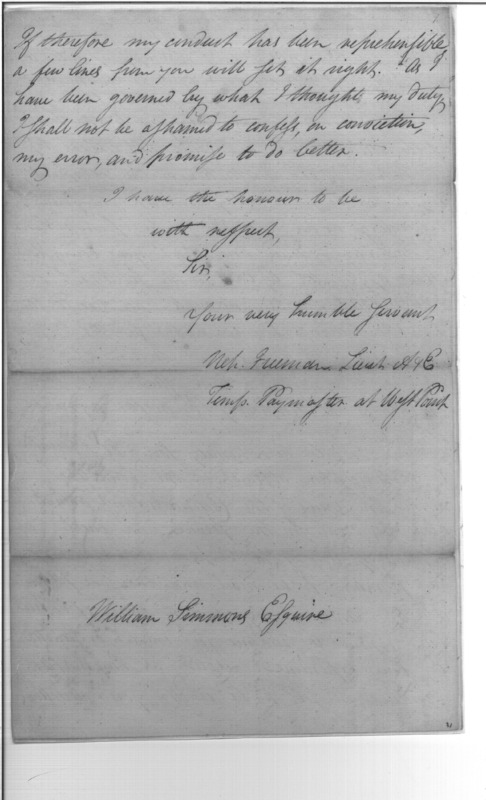 If therefore my conduct has been reprehensible,
a few lines from you will set it right. As I
have been governed by what I thought my duty,
I shall not be ashamed to confess, on conviction,
my error, and promise to do better.
I have the honour to be
with respect,
Sir,
Your very humble Servant
Neh. Freeman Lieut A&E
Temp. Paymaster at West Point
William Simmons Esquire